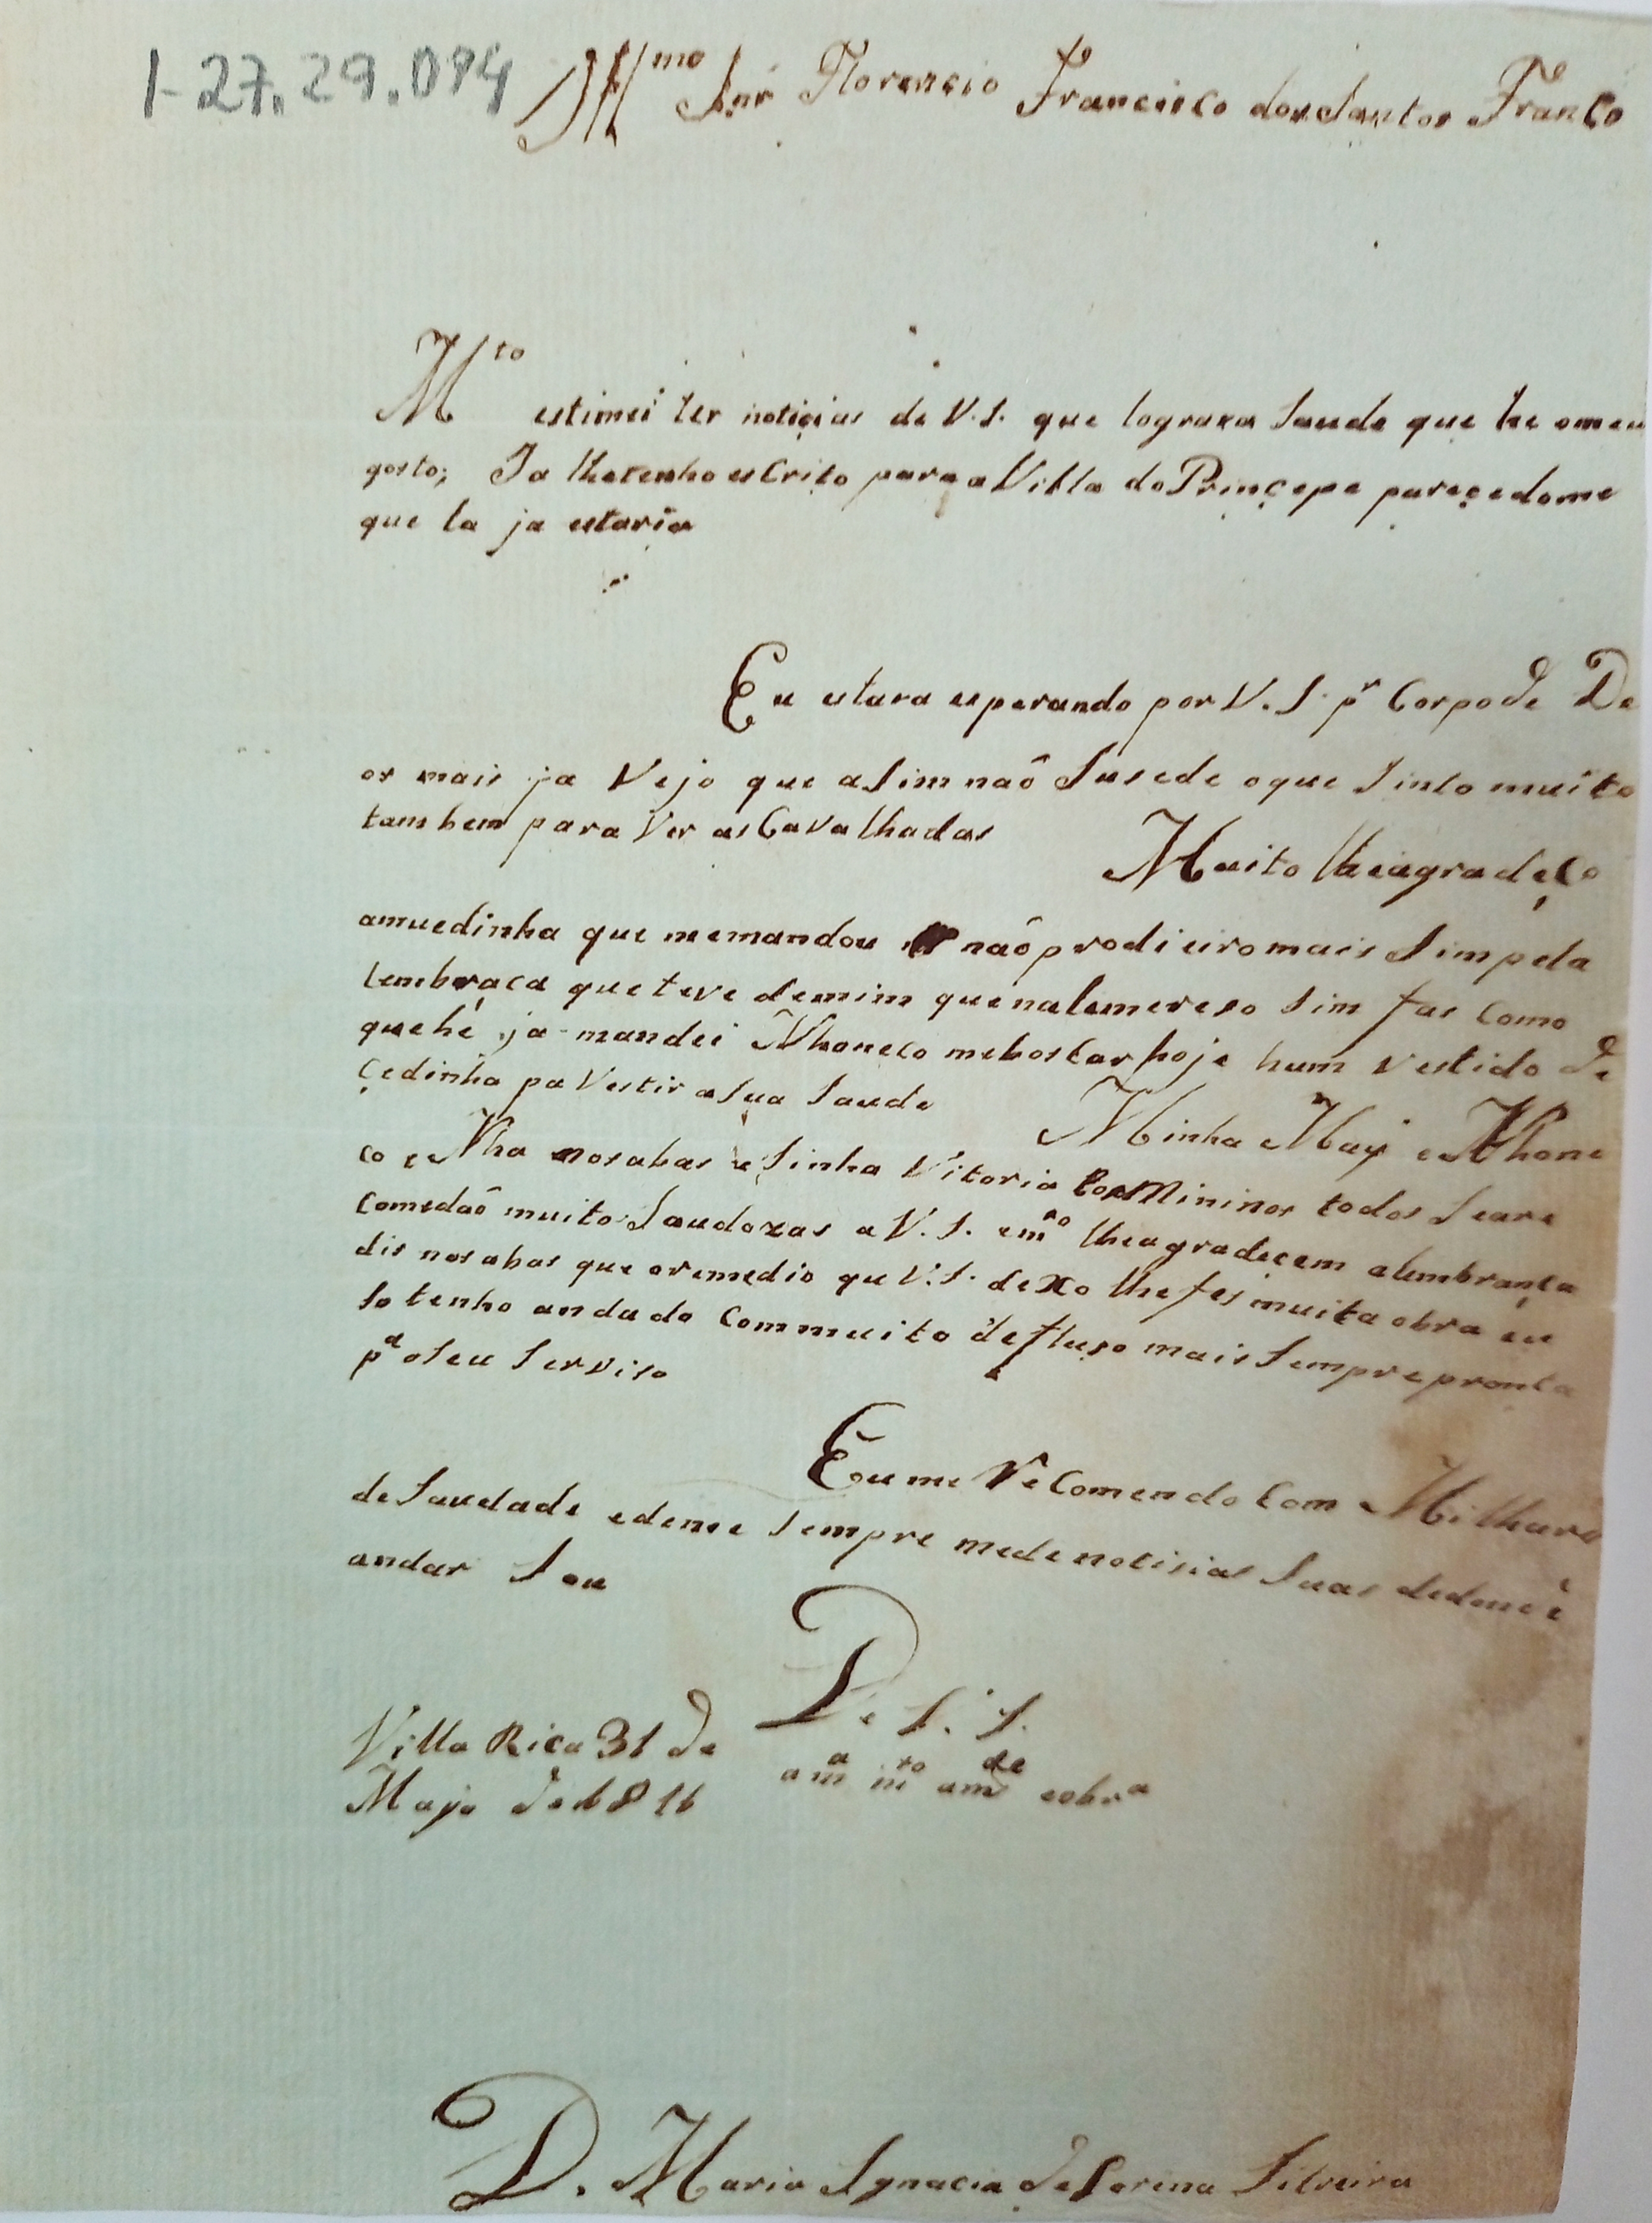 1-27.29.094
Illmo Snr Florencio Francisco dos Santos Franco
Mto estimei ter noticias de V.S. que lograra saude que he omeu
gosto; Ja lhetenho escrito para a Villa do Prinçepe pareçedome
que la ja estaria
Eu estava esperando por V.S. pr Corpo de De
os mais ja Vejo que asim naõ susede oque sinto muito
tambem para Ver as CaValhadas
Muito lheagradeço
amuedinha que memandou naõ prodieiro mais sim pela
lembraça que teve demim que nalemereso sim fas como
que hé ja mandei Nhoneco meboscar hoje hum vestido de
çedinha pa Vestir a sua saude
Minha May e Nhone
co e Nha nosabas e sinha Vitoria Mininos todos seare
comedaõ muito saudozas a V.S. emto lheagradecem alembrança
dis nosabas que oremedio qu V.S. dexo lhefes muita obra eu
so tenho andado commuito defluso mais sempre pronta
pa oseu serviso
Eume ReComendo com Milhare
de saudade edeme sempre mede notisias suas
andar Sou
De V. S.
Villa Rica 31 de
Mayo de 1816
ama mto amde eobra
D. Maria Ignacia de Serina Silveira